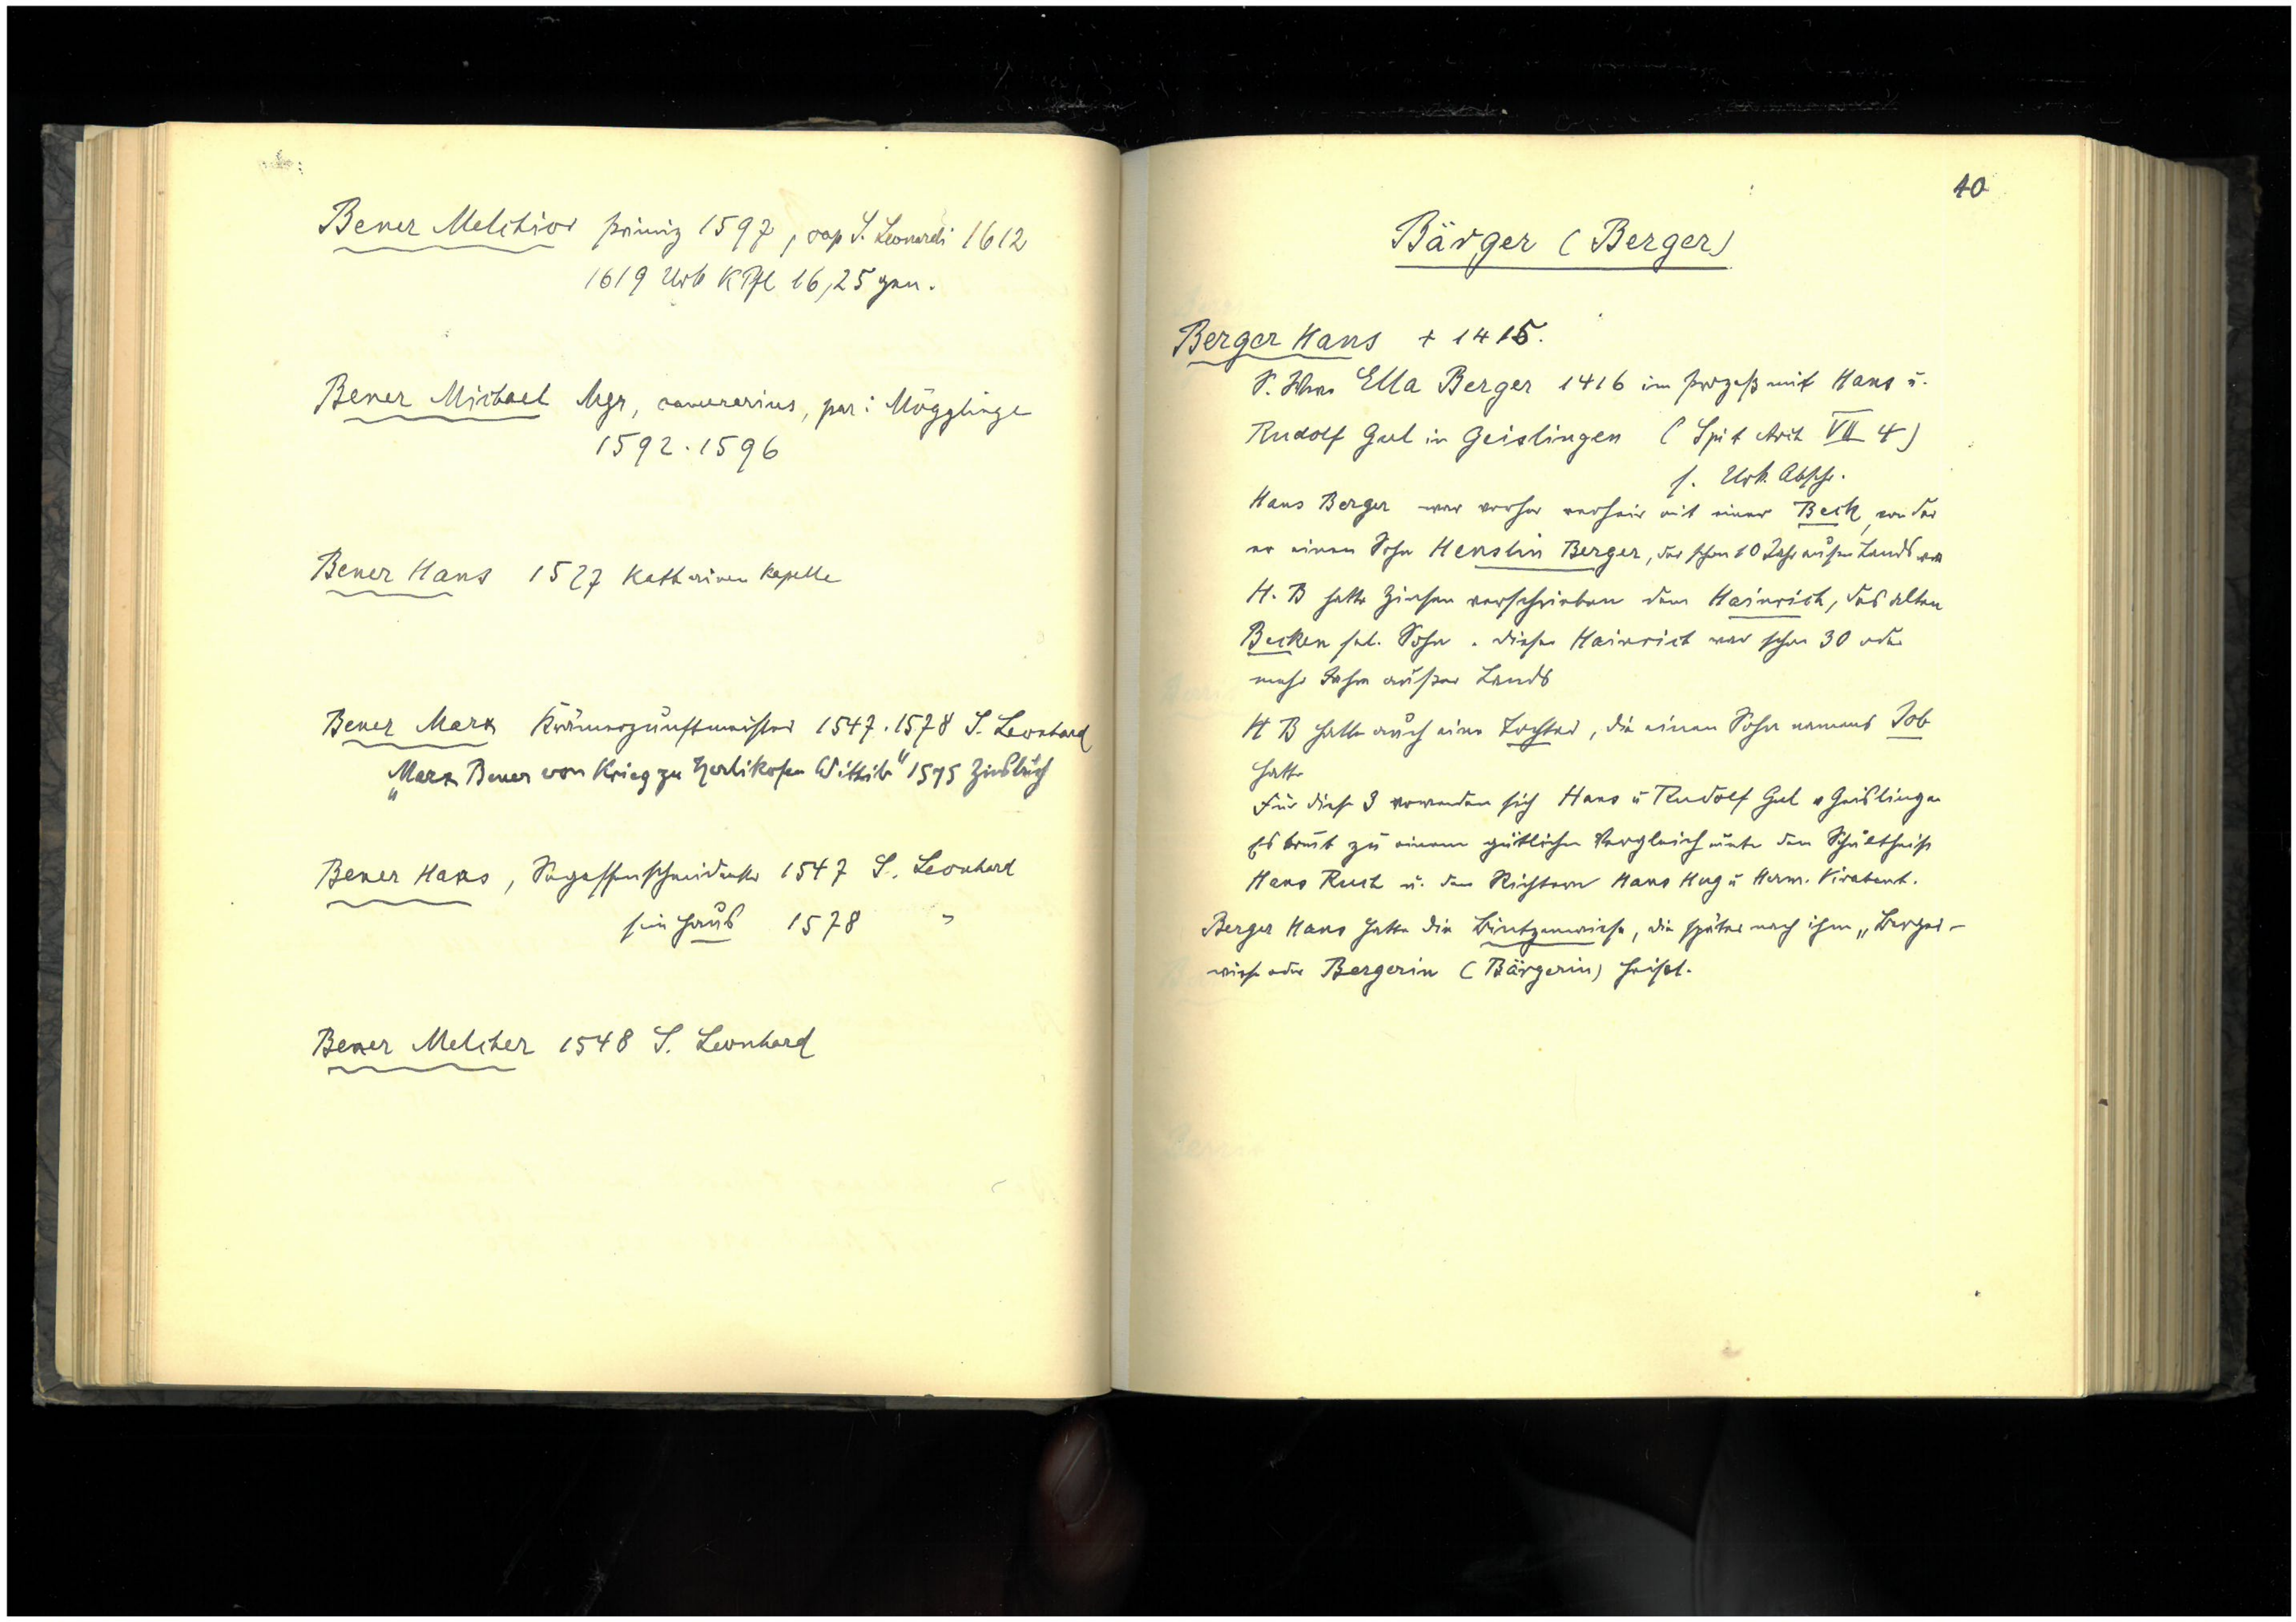 Bener Melchior primiz 1597, cap S. Leonardi 1612
1619 Urb KPfl 16,25 gen.
Bener Michael Mgr, camerarius, par: Mögglinge
1592.1596
Bener Hans 1527 Katharinen Kapelle
Bener Marx Krämerzunftmeister 1547.1578 S. Leonhard
„Marx Bener von Krieg zu Herlikofen Wittib" 1575 Zinsbuch
Bener Hans, Segessenschmied 1547 S. Leonhard
sein Haus 1578 "
Bener Melcher 1548 S. Leonhard
40
Bärger (Berger)
Berger Hans + 1415.
S. Ella Berger 1416 im Prozeß mit Hans u.
Rudolf Gul in Geislingen (Spit Arch VII 4)
s. Urk. Abschr.
Hans Berger war vorher verheir mit einer Beck, von der
er einen Sohn Henslin Berger, der schon 10 Jahr außer Lands war
H. B hatte Zinsen verschrieben dem Hainrich, des alten
Becken sel. Sohn. Dieser Hainrich war schon 30 oder
mehr Jahre außer Lands
H B hatte auch eine Tochter, die einen Sohn namens Job
hatte
Für diese 3 verwenden sich Hans u Rudolf Gul v Geislingen
Es kommt zu einem gütlichen Vergleich unter dem Schultheiß
Hans Ruch u. den Richtern Hans Hug u Herm. Virabent.
Berger Hans hatte die Bintzenwiese, die später nach ihm „Berger-
wiese oder Bergerin (Bärgerin) heißt.